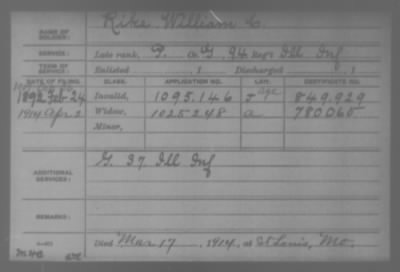 NAME OF SOLDIER: Rike William C.
SERVICE: Late rank, P. Co. G, 94 Reg't Ill Inf
TERM OF SERVICE: Enlisted 1 Discharged 1
DATE OF FILING. CLASS. APPLICATION NO. LAW. CERTIFICATE NO.
1892 Feb 24 Invalid, 1095.146 J age 849.929
1914 Apr 2 Widow, 1025248 a 780065
Minor,
ADDITIONAL SERVICES: G. 37 Ill Inf
REMARKS:
Died Mar 17, 1914, at St Louis, Mo.